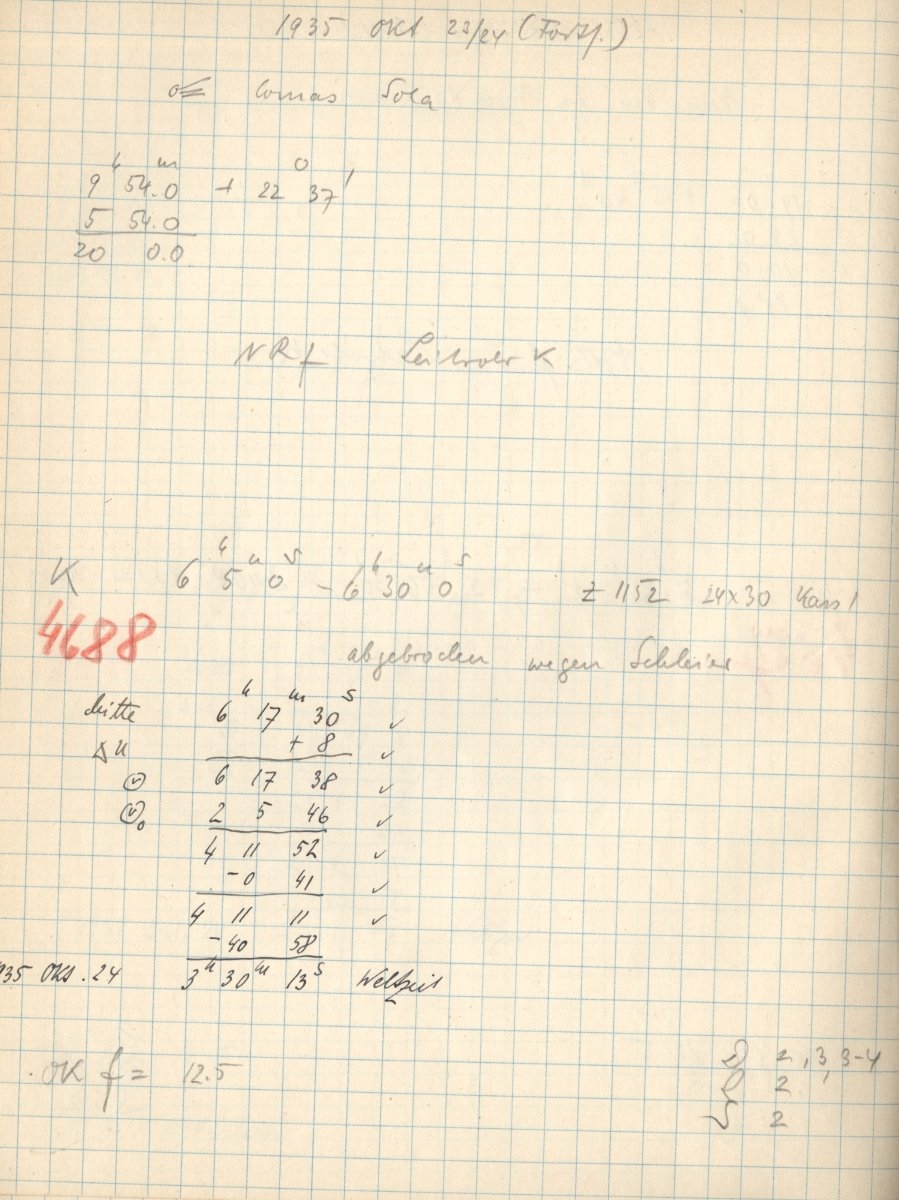 1935 Okt 23/24 (Forts.)
Comas Sola
9h 54.0m + 22° 37'
5 54.0
20 0.0
NR f Leitrohr K
K 6h 5m 0s - 6h 30m 0s Z 1152 24x30 Kass!
4688
abgebrochen wegen Schleier
Mitte 6h 17m 30s ✓
Δu + 8 ✓
6 17 38 ✓
2 5 46 ✓
4 11 52 ✓
-0 41 ✓
4 11 11 ✓
-40 58
935 Okt. 24 3h 30m 13s Weltzeit
OK f = 12.5
2, 3, 3-4
2
2